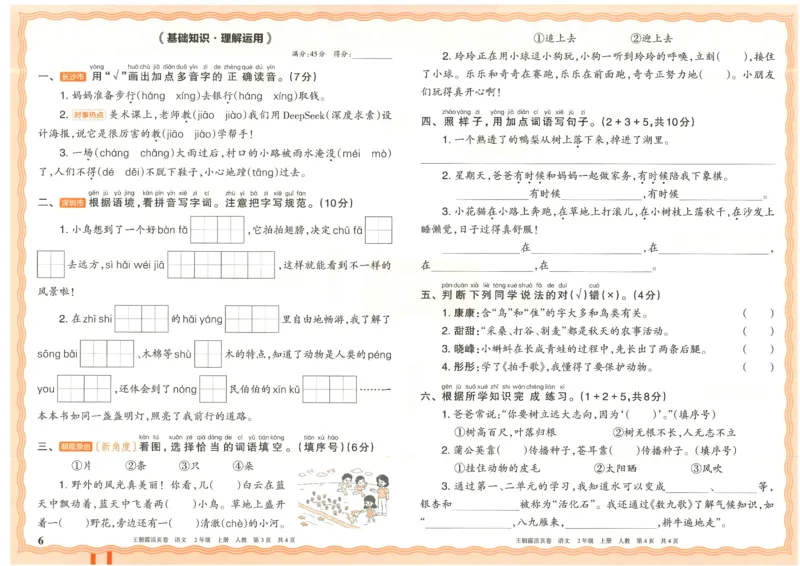 《基础知识·理解运用》
满分:45分 得分:
yòng huà chū jiā diǎn duō yīn zì de zhèng què dú yīn
一、长沙市 用“√”画出加点多音字的正确读音。(7分)
1. 妈妈准备步行(háng xíng)去银行(háng xíng)取钱。
2. 时事热点 美术课上,老师教(jiāo jiào)我们用DeepSeek(深度求索)设
计海报,说它是很厉害的教(jiāo jiào)学帮手!
3. 一场(cháng chǎng)大雨过后,村口的小路被雨水淹没(méi mò)
了,人们不得(dé děi)不脱下鞋子,小心地蹚(tāng)过去。
gēn jù yǔ jìng kàn pīn yīn xiě zì cí zhù yì bǎ zì xiě guī fàn
二、深圳市 根据语境,看拼音写字词。注意把字写规范。(10分)
1. 小鸟想到了一个好bàn fǎ ,它拍拍翅膀,决定chū fā
去远方,sì hǎi wéi jiā ,这样就能看到不一样的
风景啦!
2. 在zhī shi 的hǎi yáng 里自由地畅游,我了解了
sōng bǎi 、木棉等shù 木的特点,知道了动物是人类的péng
you ,还体会到了nóng 民伯伯的xīn kǔ ……一
本本书如同一盏盏明灯,照亮了我前行的道路。
kàn tú xuǎn zé qià dàng de cí yǔ tián kòng tián xù hào
三、朝霞原创 〔新角度〕看图,选择恰当的词语填空。(填序号)(6分)
①片 ②条 ③只 ④朵
1. 野外的风光真美丽!你看,几( )白云在蓝
天中飘动着,蓝天中飞着两( )小鸟。草地上盛开
着一( )野花,旁边还有一( )清澈(chè)的小河。
6
王朝霞活页卷 语文 2年级 上册 人教 第3页 共4页
①追上去 ②迎上去
2. 玲玲正在用小球逗小狗玩,小狗一听到玲玲的呼唤,立刻( ),接住
了小球。乐乐和奇奇在赛跑,乐乐在前面跑,奇奇正努力地( )。小朋友
们玩得真开心啊!
zhào yàng zi yòng jiā diǎn cí yǔ xiě jù zi
四、照样子,用加点词语写句子。(2+3+5,共10分)
1. 一个熟透了的鸭梨从树上落下来,掉进了湖里。
2. 星期天,爸爸有时候和妈妈一起做家务,有时候陪我下象棋。
有时候 ,有时候 。
3. 小花猫在小路上奔跑,在草地上打滚儿,在小树枝上荡秋千,在沙发上
睡懒觉,日子过得真舒服!
在 ,在 ,
在 ,在 。
pàn duàn xià liè tóng xué shuō fǎ de duì cuò
五、判断下列同学说法的对(√)错(×)。(4分)
1. 康康:含“鸟”和“隹”的字大多和鸟类有关。 ( )
2. 甜甜:“采桑、打谷、割麦”都是秋天的农事活动。 ( )
3. 晓峰:小蝌蚪在长成青蛙的过程中,先长出了两条后腿。 ( )
4. 彤彤:学了《拍手歌》,我懂得了要保护动物。 ( )
gēn jù suǒ xué zhī shi wán chéng liàn xí
六、根据所学知识完成练习。(1+2+5,共8分)
1. 爸爸常说:“你要树立远大志向,因为‘( )’。”(填序号)
①树高百尺,叶落归根 ②树无根不长,人无志不立
2. 蒲公英靠( )传播种子,苍耳靠( )传播种子。(填序号)
①挂住动物的皮毛 ②太阳晒 ③风吹
3. 通过第一、二单元的学习,我知道水可以变成 、 等,
银杏和 被称为“活化石”。我还通过《数九歌》了解气候知识,如
“ ,八九雁来, ,耕牛遍地走”。
王朝霞活页卷 语文 2年级 上册 人教 第4页 共4页